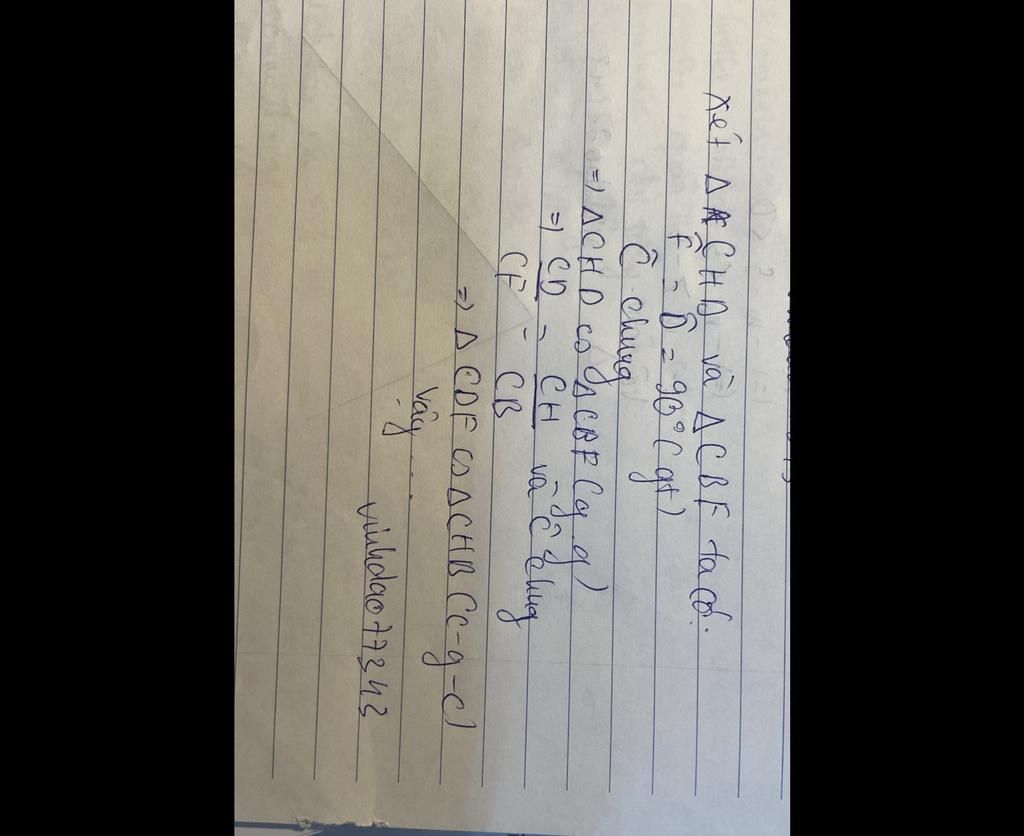 Xét ΔCHD và ΔCBF ta có:
F̂ = D̂ = 90° (gt)
Ĉ chung
=> ΔCHD ∽ ΔCBF (g.g)
=> CD/CF = CH/CB và Ĉ chung
=> ΔCDF ∽ ΔCHB (c-g-c)
Vậy...
vinhdao77343